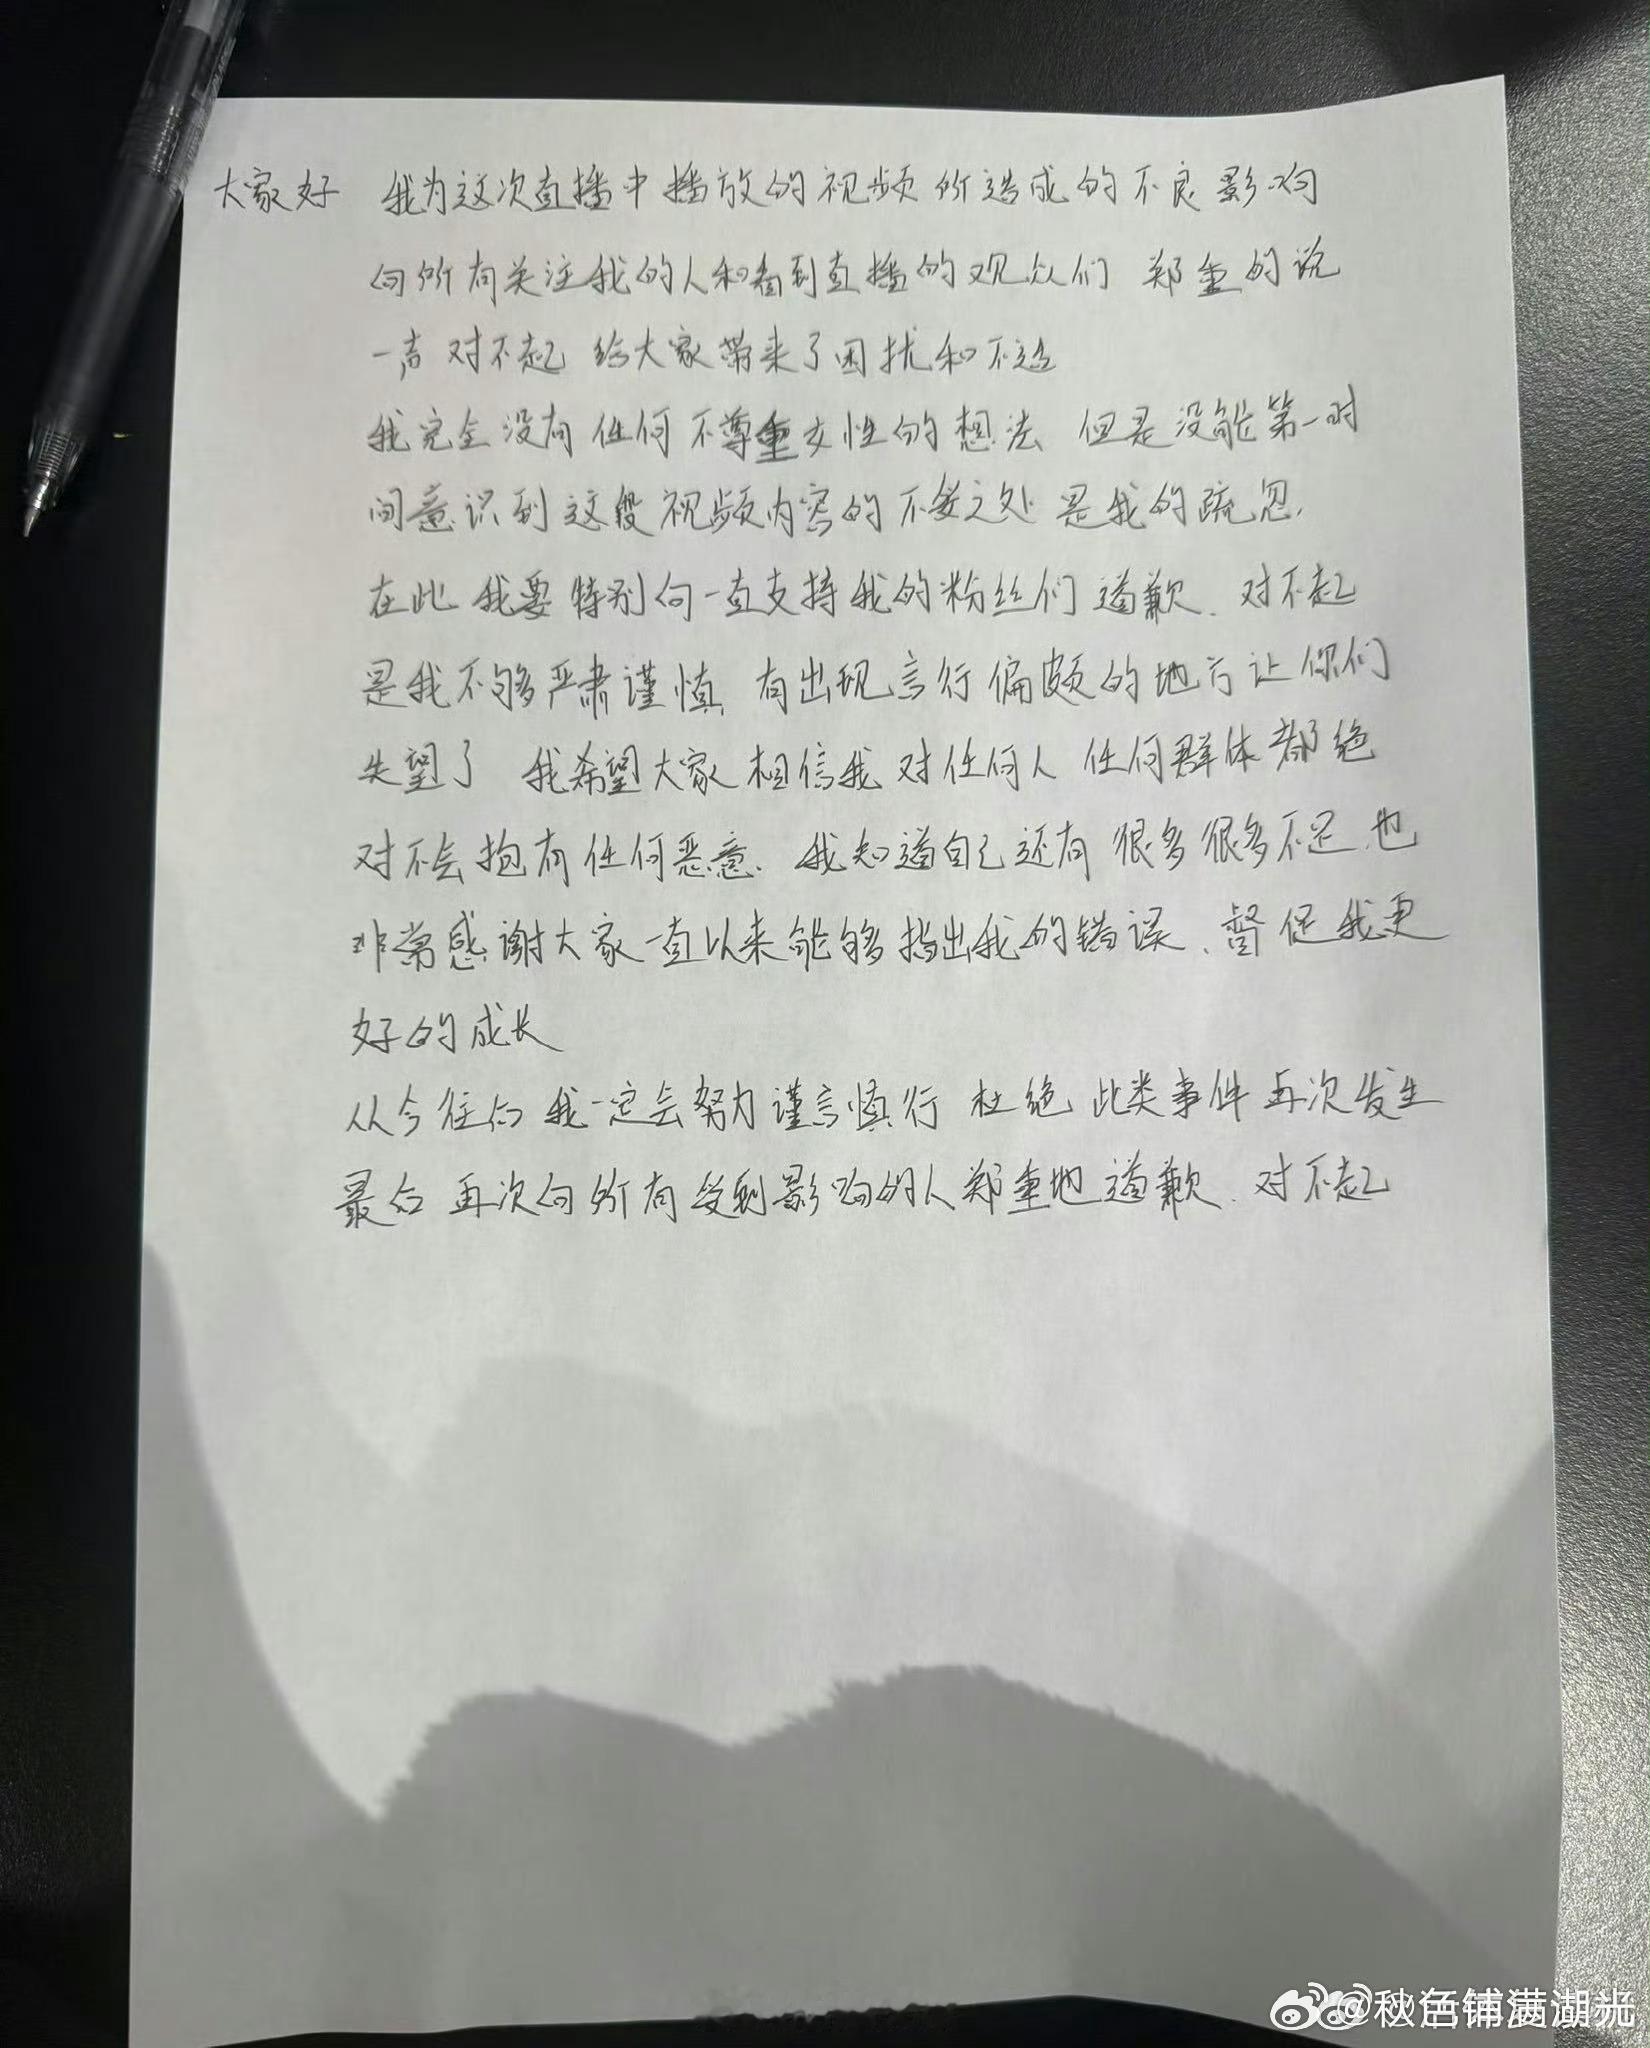 大家好 我为这次直播中播放的视频所造成的不良影响
向所有关注我的人和看到直播的观众们 郑重的说
一声 对不起 给大家带来了困扰和不适
我完全没有任何不尊重女性的想法 但是没能第一时
间意识到这段视频内容的不妥之处 是我的疏忽.
在此 我要特别向一直支持我的粉丝们道歉. 对不起
是我不够严肃谨慎, 有出现言行偏颇的地方让你们
失望了 我希望大家相信我 对任何人 任何群体都绝
对不会抱有任何恶意. 我知道自己还有很多很多不足,也
非常感谢大家一直以来能够指出我的错误、督促我更
好的成长
从今往后 我一定会努力谨言慎行 杜绝此类事件再次发生
最后 再次向所有受到影响的人郑重地道歉. 对不起
@秋色铺满湖光